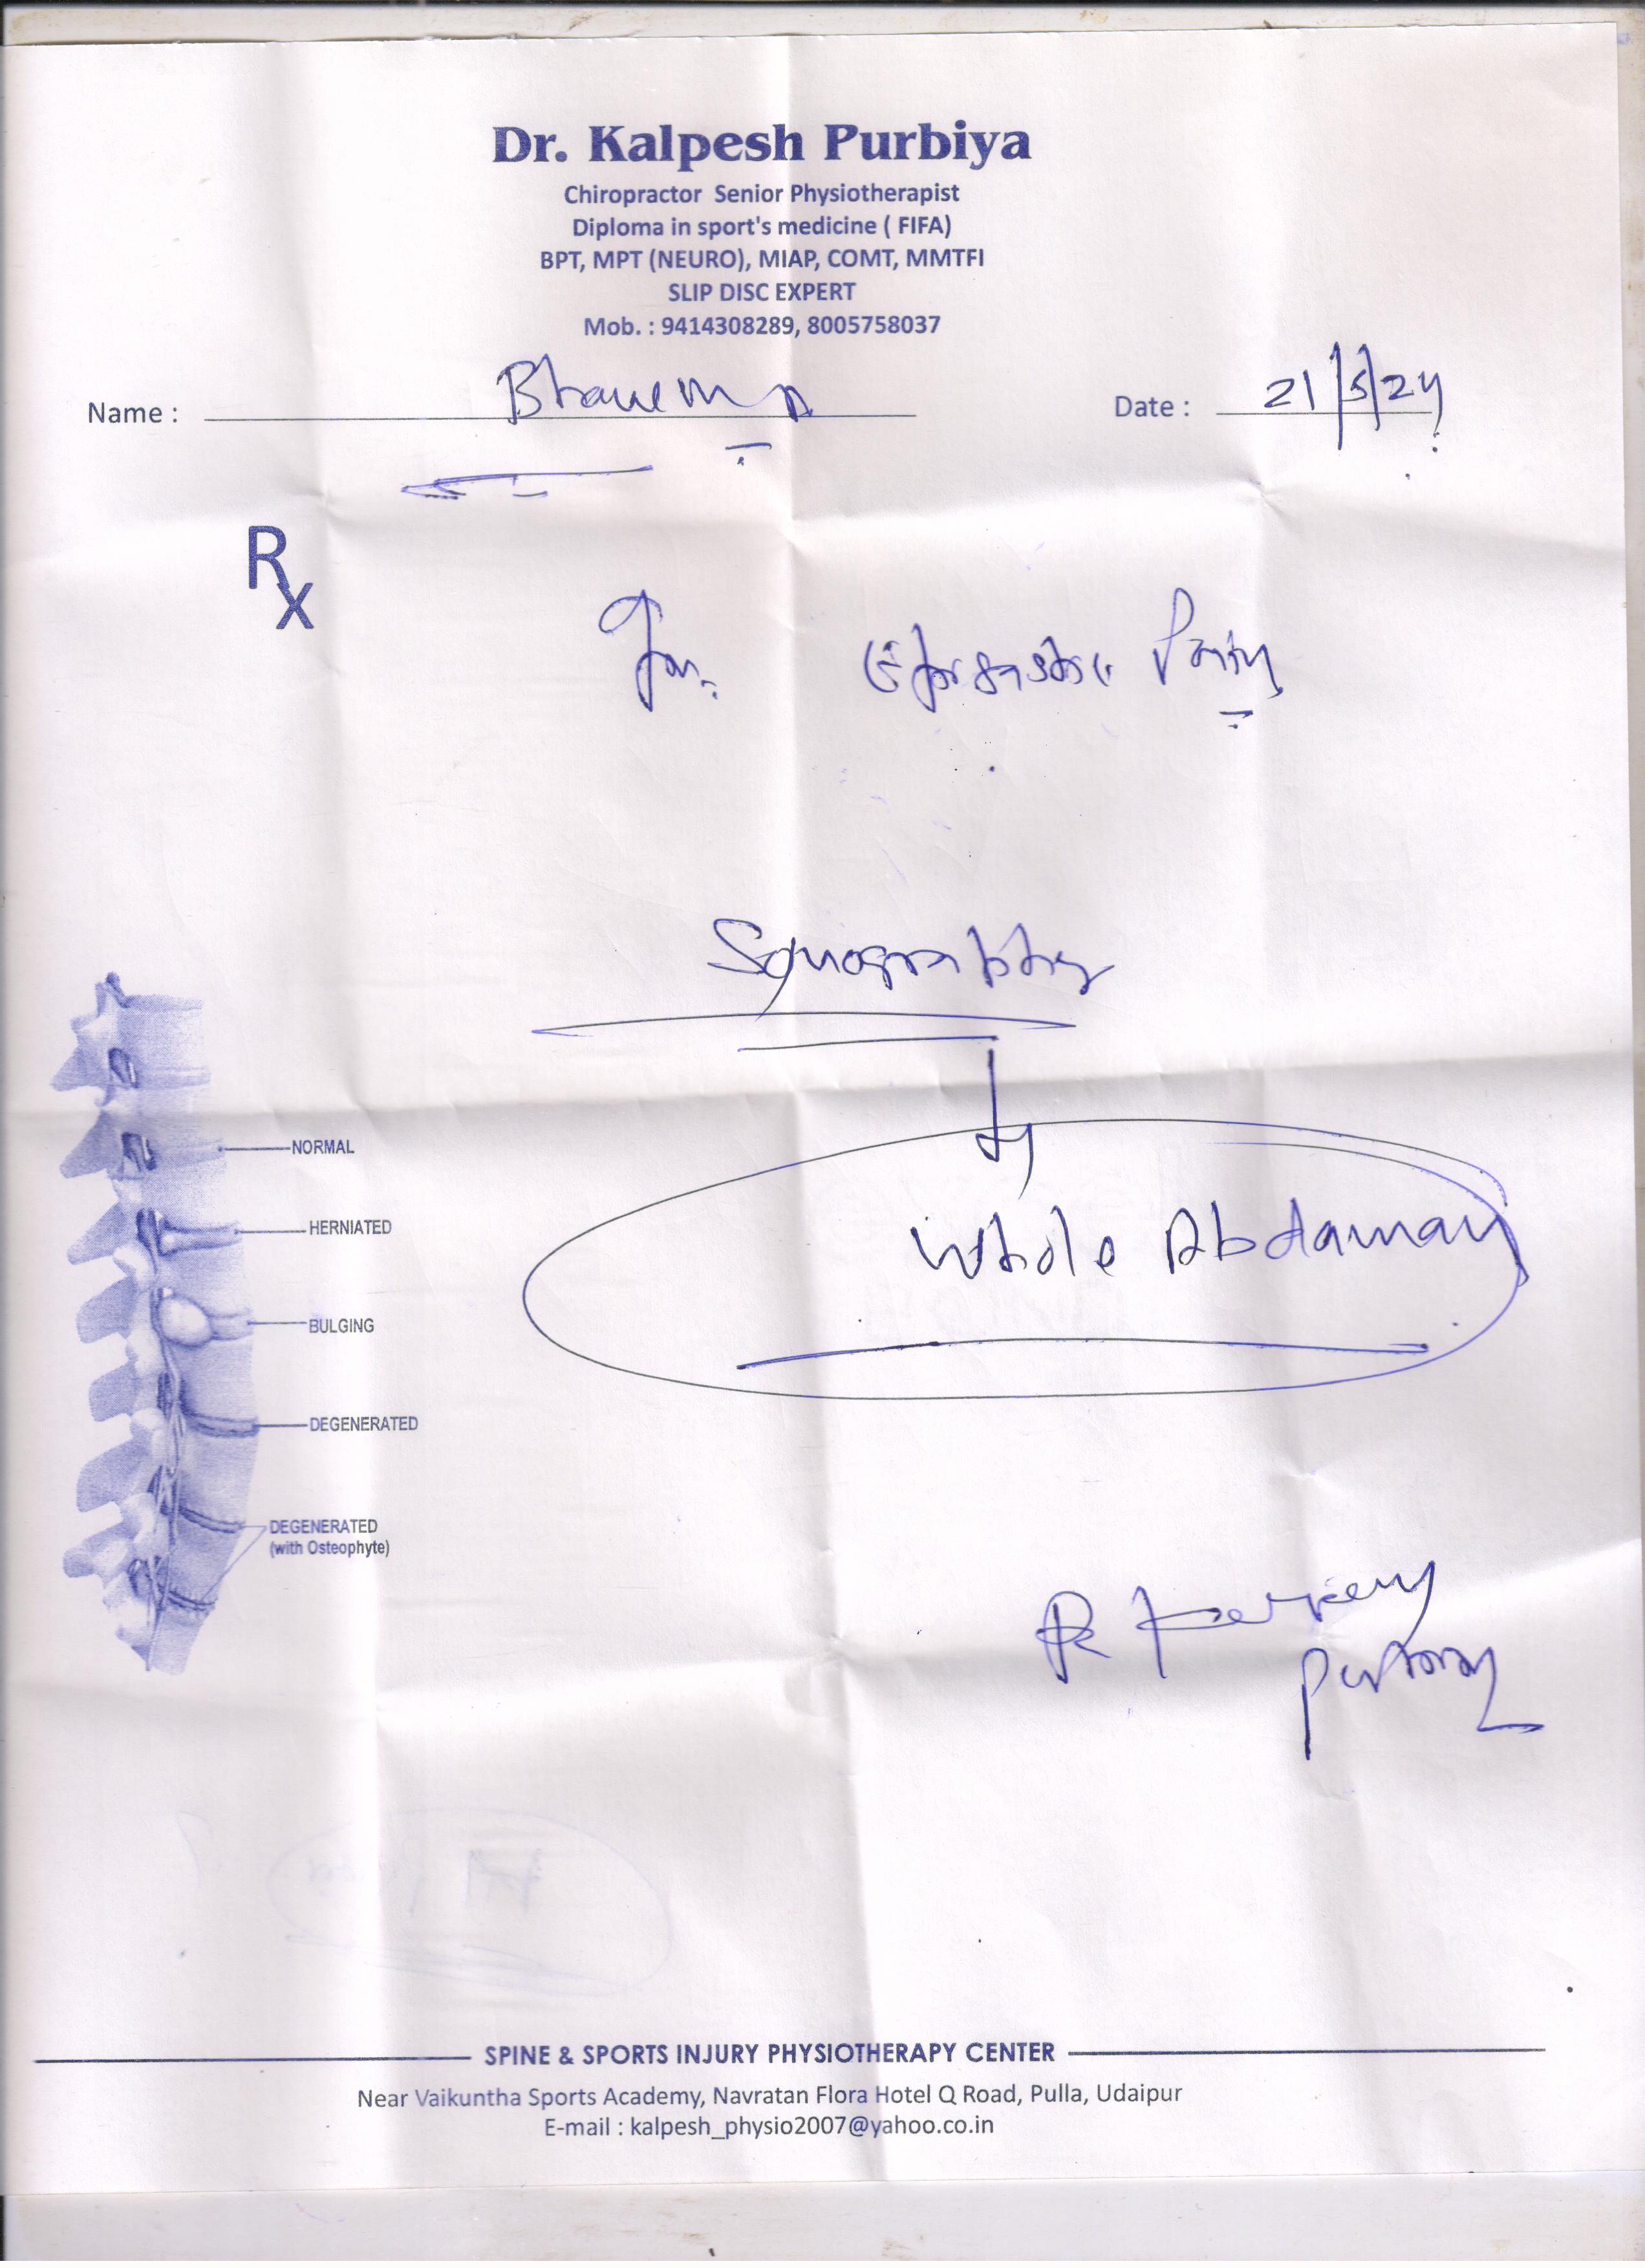 Dr. Kalpesh Purbiya
Chiropractor Senior Physiotherapist
Diploma in sport's medicine ( FIFA)
BPT, MPT (NEURO), MIAP, COMT, MMTFI
SLIP DISC EXPERT
Mob. : 9414308289, 8005758037
Name :
Date : 21/5/24
Rx
for
Sonography
Whole Abdoman
NORMAL
HERNIATED
BULGING
DEGENERATED
DEGENERATED
(with Osteophyte)
SPINE & SPORTS INJURY PHYSIOTHERAPY CENTER
Near Vaikuntha Sports Academy, Navratan Flora Hotel Q Road, Pulla, Udaipur
E-mail : kalpesh_physio2007@yahoo.co.in